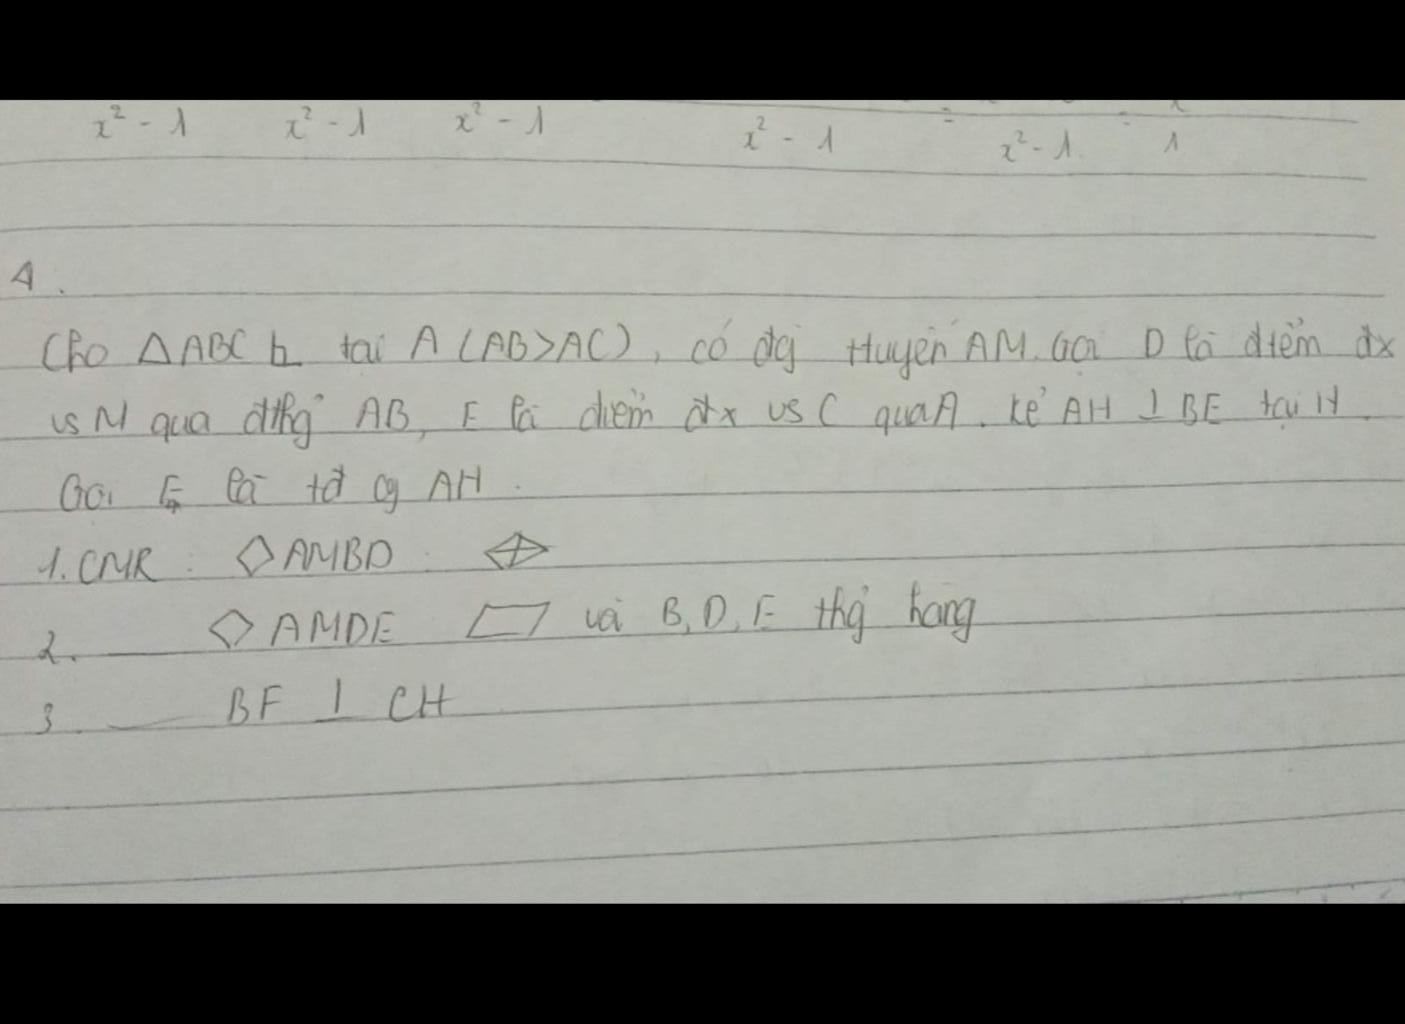 x² - 1 x² - 1 x² - 1 x² - 1 = x² - 1 = 1
4.
Cho △ABC ⊾ tại A (AB>AC), có đg tuyến AM. Gọi D là điểm đx
vs M qua đthg AB, E là điểm đx vs C qua A. kẻ AH ⊥ BE tại H.
Gọi F là tđ cg AH.
1. CMR: ◇AMBD
2. ___ ◇AMDE ▱ và B, D, E thg hàng
3. ___ BF ⊥ CH